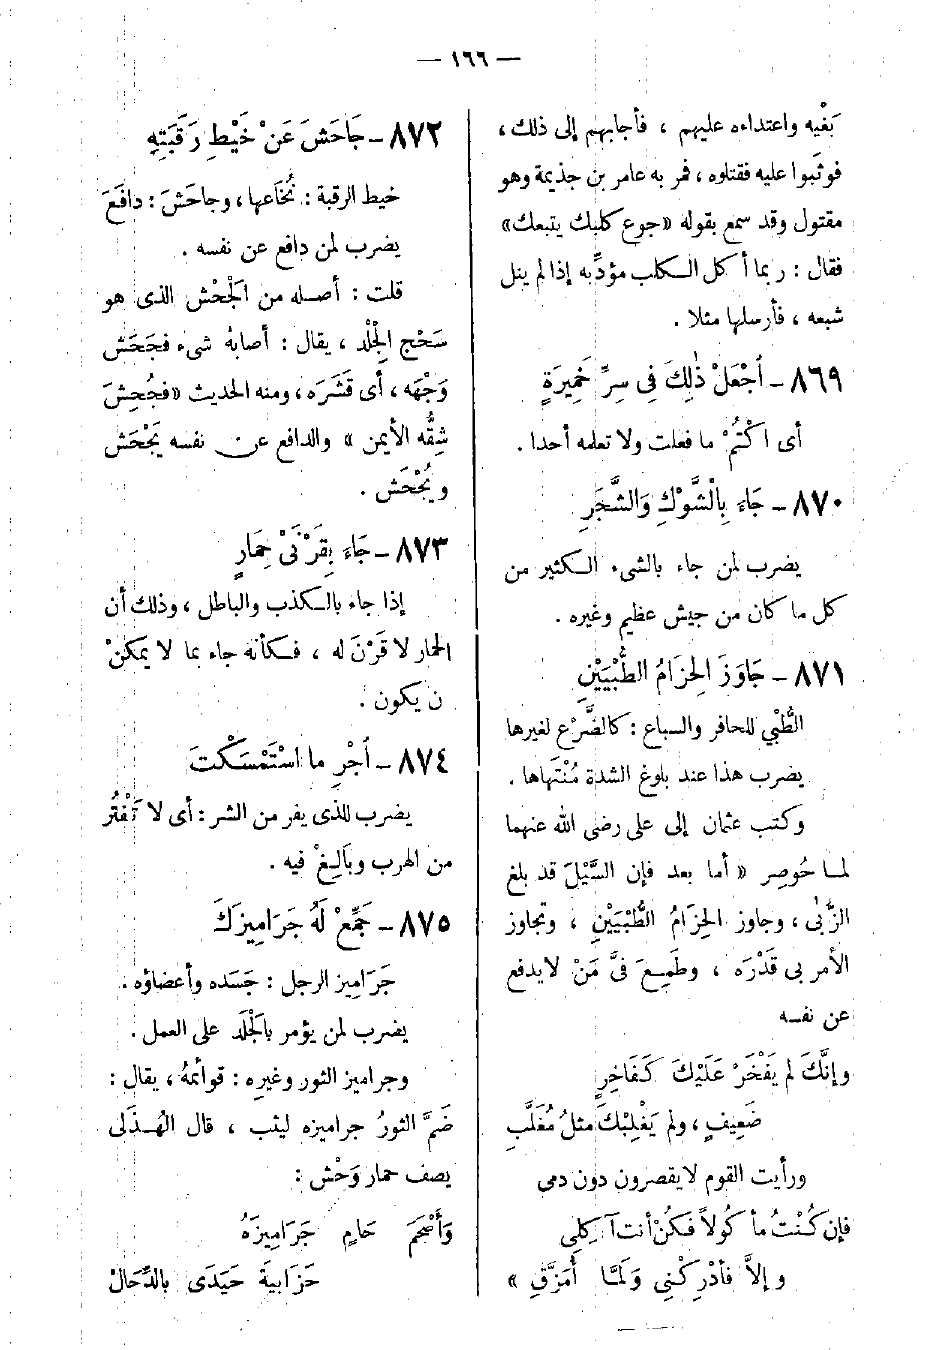 — ١٦٦ —
بَغْيه واعتداءه عليهم ، فأجابهم إلى ذلك ،
فوثَبوا عليه فقتلوه ، فمر به عامر بن جذيمة وهو
مقتول وقد سمع بقوله «جوع كلبك يتبعك»
فقال : ربما أكل الكلب مؤدِّبه إذا لم ينل
شبعه ، فأرسلها مثلا .
٨٦٩ – اُجْعَلْ ذٰلِكَ فِى سِرِّ خَمِيرَةٍ
أى اكْتُمْ ما فعلت ولا تعلمه أحدا .
٨٧٠ – جَاءَ بِالْشَّوْكِ وَالشَّجَرِ
يضرب لمن جاء بالشىء الكثير من
كل ما كان من جيش عظيم وغيره .
٨٧١ – جَاوَزَ الحِزَامُ الطُّبْيَيْنِ
الطُّبْي للحافر والسباع : كالضَّرْع لغيرها
يضرب هذا عند بلوغ الشدة مُنْتَهاها .
وكتب عثمان إلى على رضى الله عنهما
لما حُوصِر « أما بعد فإن السَّيْلَ قد بلغ
الزُّبٰى ، وجاوز الحِزَامُ الطُّبْيَيْنِ ، وتجاوز
الأمر بى قَدْرَه ، وطَمِعَ فىَّ مَنْ لا يدفع
عن نفسه
وإنَّكَ لم يَفْخَرْ عَلَيْكَ كَفَاخِرٍ
ضَعِيفٍ ، ولم يَغْلِبْكَ مثلُ مُغَلَّبِ
ورأيت القوم لا يقصرون دون دمى
فإن كُنْتُ مأكُولاً فَكُنْ أنت آكِلِى
وإلاَّ فأدْرِكْنِى وَلَمَّا أُمَزَّقِ »
٨٧٢ – جَاحَشَ عَنْ خَيْطِ رَقَبَتِهِ
خيط الرقبة : نُخَاعها ، وجاحَشَ : دافَعَ
يضرب لمن دافع عن نفسه .
قلت : أصله من الجْحْش الذى هو
سَحْج الجِلْد ، يقال : أصابهُ شىء فجَحَشَ
وَجْهَه ، أى قَشَرَه ، ومنه الحديث «فجُحِشَ
شِقُّه الأيمن » والدافع عن نفسه يَجْحَش
ويُجْحَش .
٨٧٣ – جَاءَ بِقَرْنَىْ حِمَارٍ
إذا جاء بالكذب والباطل ، وذلك أن
الحمار لا قَرْنَ له ، فكأنه جاء بما لا يمكنْ
ن يكون .
٨٧٤ – أَجْرِ ما اسْتَمْسَكْتَ
يضرب للذى يفر من الشر : أى لا تَفْتُر
من الهرب وبَالِغْ فيه .
٨٧٥ – جَمِّعْ لَهُ جَرَامِيزَكَ
جَرَامِيز الرجل : جَسَده وأعضاؤه .
يضرب لمن يؤمر بالْجَلَد على العمل .
وجراميز الثور وغيرِه : قوائمهُ ، يقال :
ضَمَّ الثورُ جراميزه ليثب ، قال الهُذَلى
يصف حمار وَحْش :
وَأَصْحَمَ حَامٍ جَرَامِيزَهُ
حَزَابِيةَ حَيَدَى بالدِّحَالْ